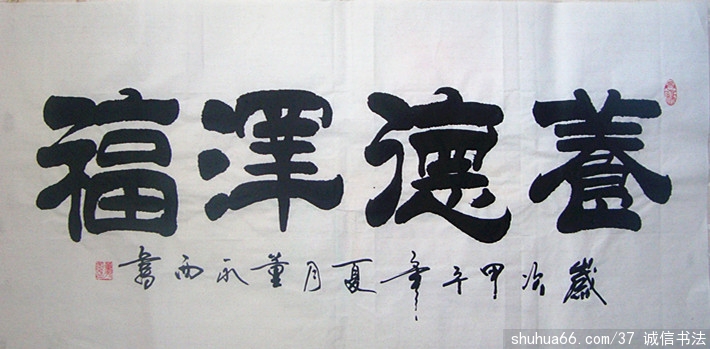 養德澤福
歲次甲午年夏月董永西書
shuhua66.com/37 诚信书法